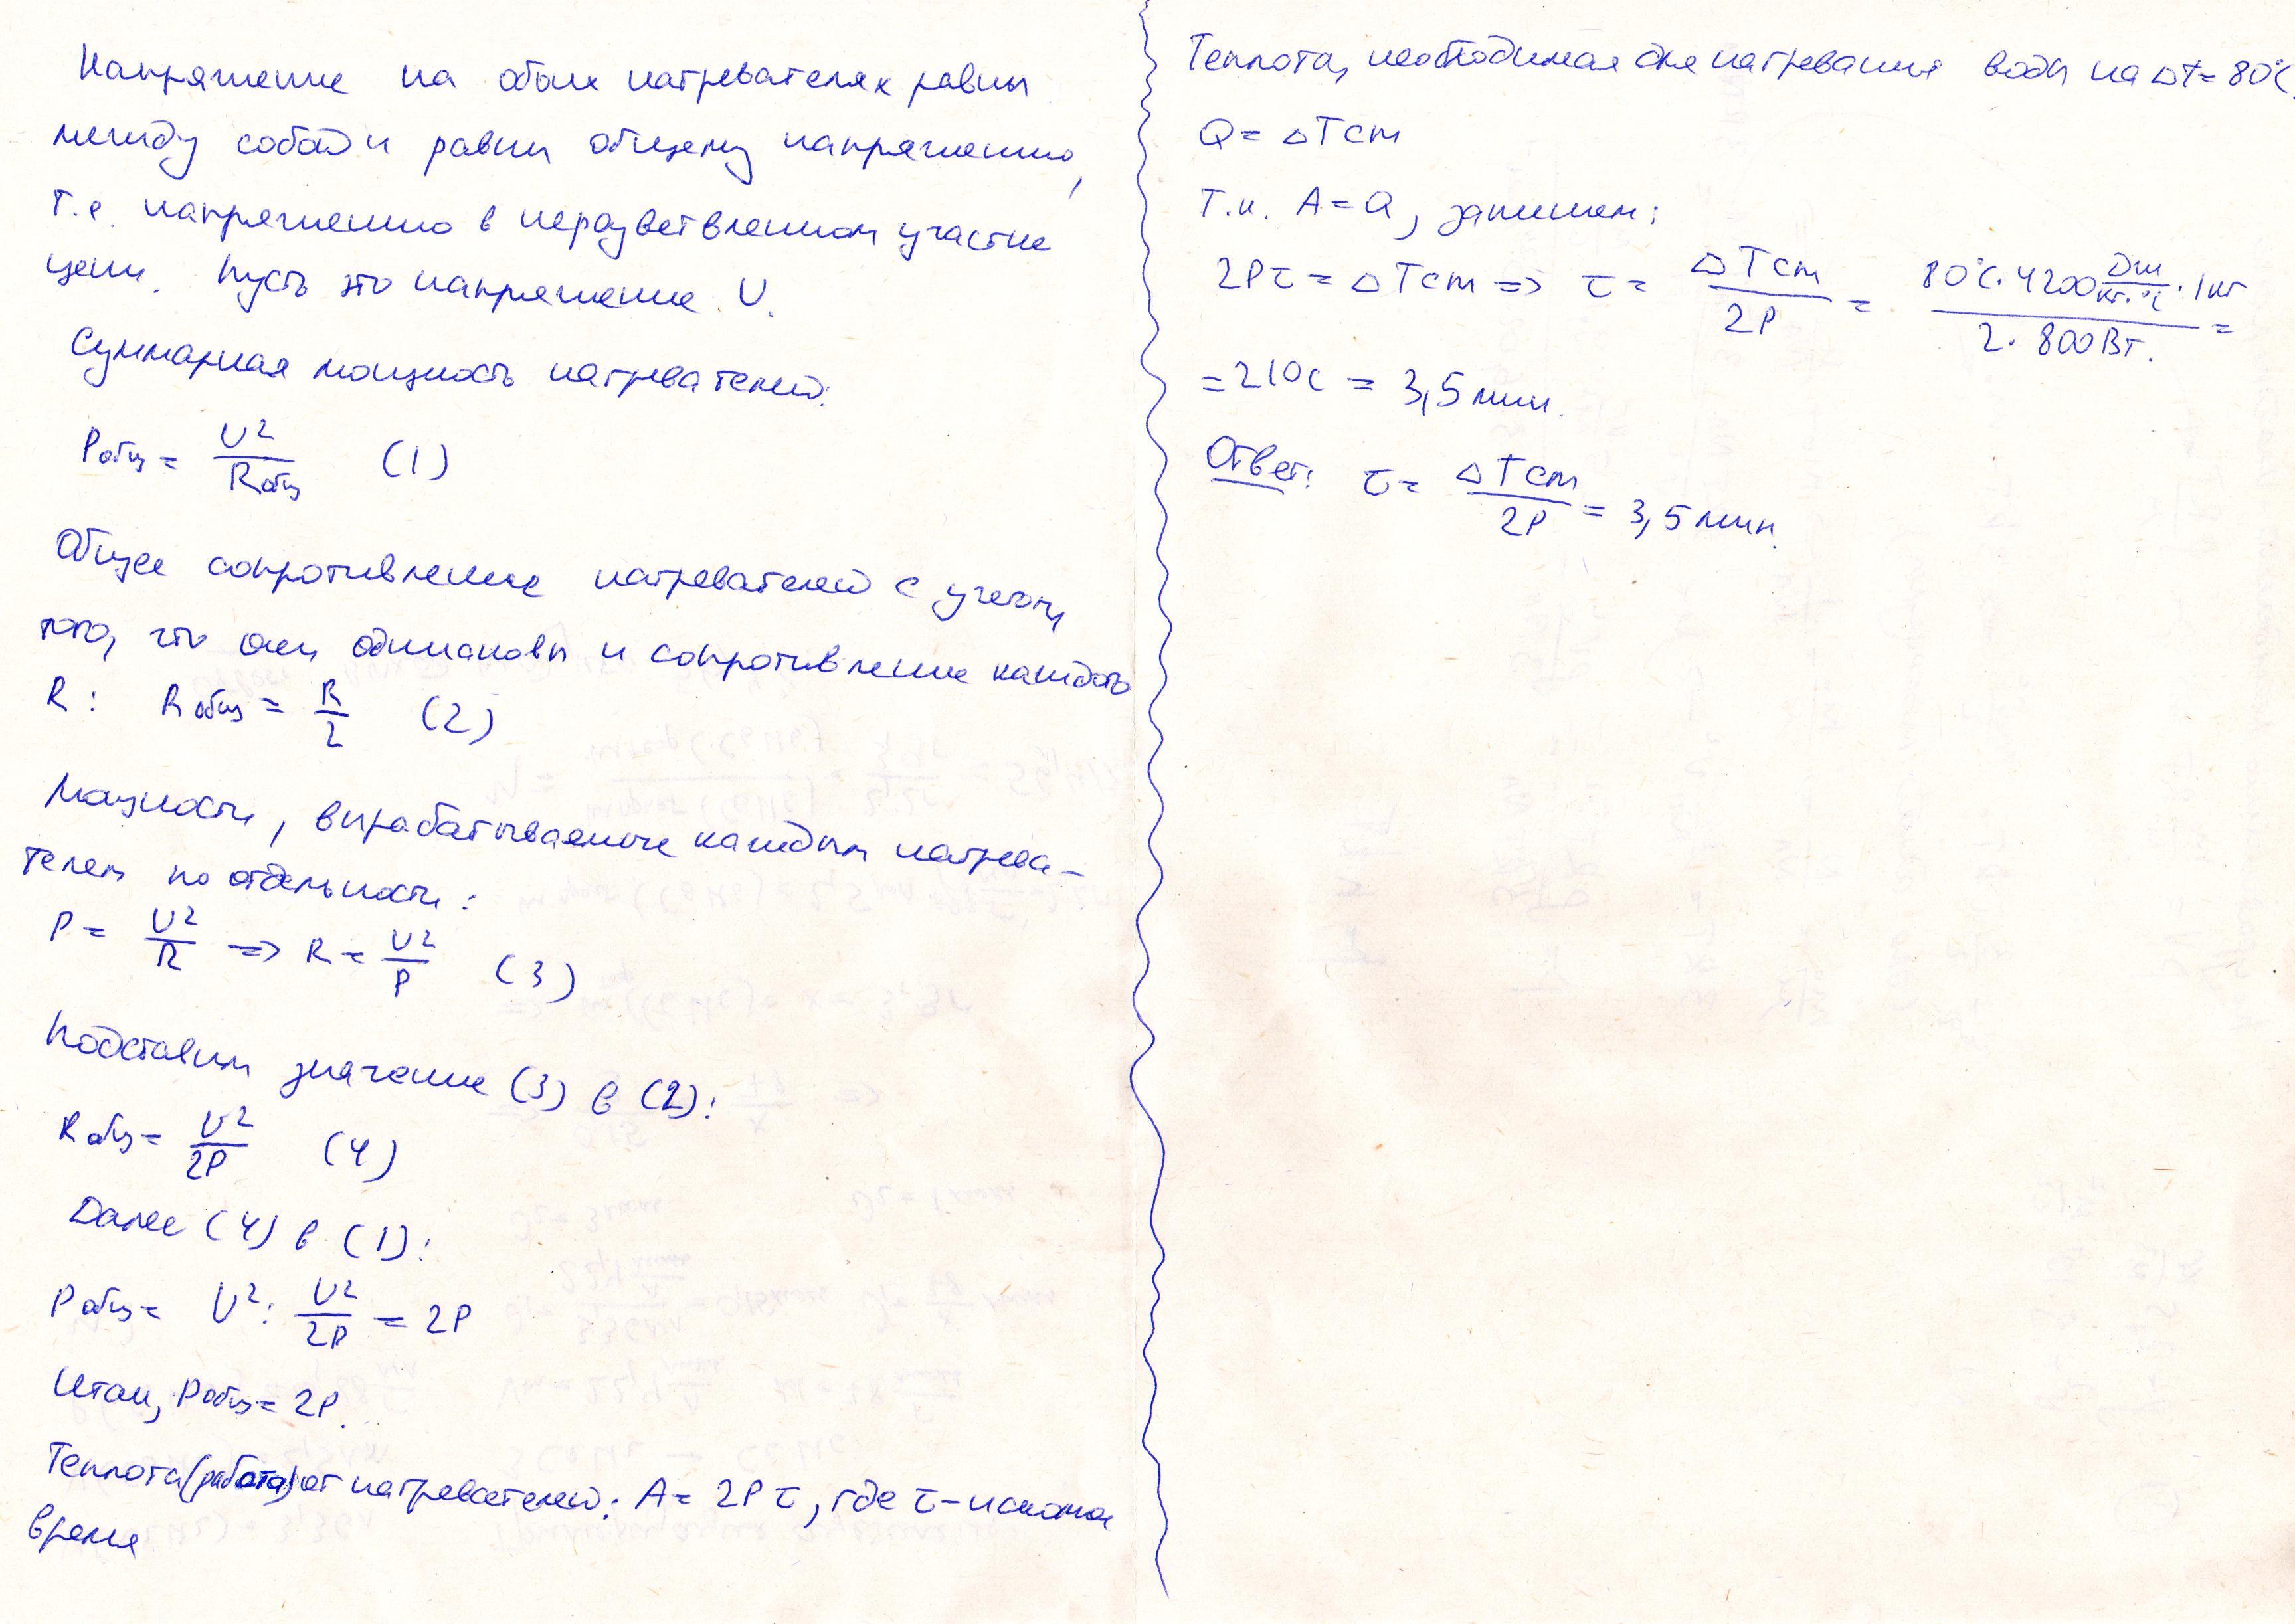 Напряжение на обоих нагревателях равны
между собой и равны общему напряжению,
т.е. напряжению в неразветвленном участке
цепи. Пусть это напряжение U.
Суммарная мощность нагревателей:
Pобщ = U²/Rобщ (1)
Общее сопротивление нагревателей с учетом
того, что они одинаковы и сопротивление каждого
R: Rобщ = R/2 (2)
Мощность, вырабатываемое каждым нагрева-
телем по отдельности:
P = U²/R => R = U²/P (3)
Подставим значение (3) в (2):
Rобщ = U²/2P (4)
Далее (4) в (1):
Pобщ = U² : U²/2P = 2P
Итак, Pобщ = 2P.
Теплота (работа) от нагревателей: A = 2Pτ, где τ - искомое
время
Теплота, необходимая для нагревания воды на ΔT = 80°C
Q = ΔTcm
Т.к. A = Q, запишем:
2Pτ = ΔTcm => τ = ΔTcm/2P = 80°C · 4200 Дж/кг·°C · 1кг / 2 · 800Вт. =
= 210с = 3,5 мин.
Ответ: τ = ΔTcm/2P = 3,5 мин.